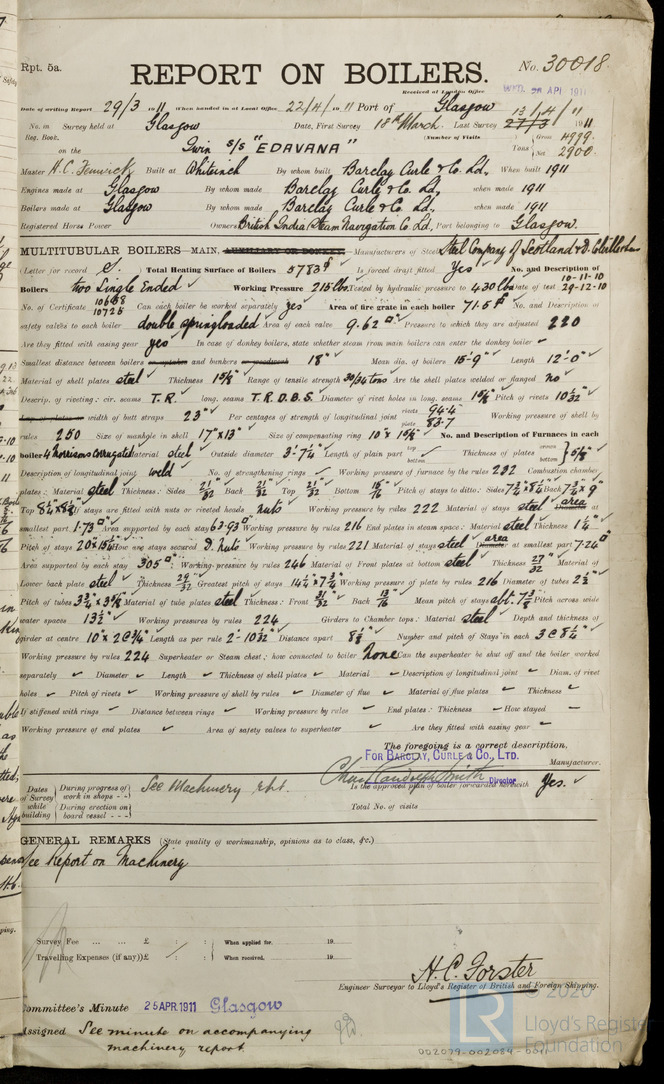 Rpt. 5a.
No. 30018
REPORT ON BOILERS.
Received at London Office WED. 26 APR 1911
Date of writing Report 29/3 1911 When handed in at Local Office 22/4/1911 Port of Glasgow
No. in Survey held at Glasgow Date, First Survey 18th March Last Survey 13/4/11 1911
Reg. Book. (Number of Visits
on the Twin s/s "EDAVANA" Tons Gross 4999 Net 2900
Master H.C. Fenwick Built at Whiteinch By whom built Barclay Curle & Co. Ld. When built 1911
Engines made at Glasgow By whom made Barclay Curle & Co. Ld. when made 1911
Boilers made at Glasgow By whom made Barclay Curle & Co. Ld. when made 1911
Registered Horse Power Owners British India Steam Navigation Co. Ld. Port belonging to Glasgow.
MULTITUBULAR BOILERS—MAIN, AUXILIARY OR DONKEY.—Manufacturers of Steel Steel Company of Scotland & D. Colville & Son
(Letter for record S.) Total Heating Surface of Boilers 5783 ft Is forced draft fitted Yes No. and Description of
Boilers two Single Ended Working Pressure 215 lbs Tested by hydraulic pressure to 430 lbs Date of test 10-11-10 29-12-10
No. of Certificate 10668 10725 Can each boiler be worked separately yes Area of fire grate in each boiler 71.5 ft No. and Description of
safety valves to each boiler double spring loaded Area of each valve 9.62 □" Pressure to which they are adjusted 220
Are they fitted with easing gear yes In case of donkey boilers, state whether steam from main boilers can enter the donkey boiler
Smallest distance between boilers or uptakes and bunkers or woodwork 18" Mean dia. of boilers 15'-9" Length 12'-0"
Material of shell plates steel Thickness 1 5/16 Range of tensile strength 30/34 tons Are the shell plates welded or flanged no
Descrip. of riveting: cir. seams T.R. long. seams T.R.D.B.S. Diameter of rivet holes in long. seams 1 5/16 Pitch of rivets 10 1/32"
Lap of plates or width of butt straps 23" Per centages of strength of longitudinal joint rivets 94.4 plate 83.7 Working pressure of shell by
rules 250 Size of manhole in shell 17" x 13" Size of compensating ring 10" x 1 5/16" No. and Description of Furnaces in each
boiler 4 Morrison Corrugated Material steel Outside diameter 3'-7 1/4" Length of plain part top bottom Thickness of plates crown bottom 5/8"
Description of longitudinal joint weld No. of strengthening rings Working pressure of furnace by the rules 232 Combustion chamber
plates: Material steel Thickness: Sides 21/32 Back 21/32 Top 21/32 Bottom 15/16 Pitch of stays to ditto: Sides 7 3/4" x 8 1/4" Back 7 3/4" x 9"
Top 8 1/4" x 8 1/2" If stays are fitted with nuts or riveted heads nuts Working pressure by rules 222 Material of stays steel area Diameter at
smallest part 1.73 □" Area supported by each stay 63.93 □" Working pressure by rules 216 End plates in steam space: Material steel Thickness 1 1/4"
Pitch of stays 20" x 15 1/4" How are stays secured D. nuts Working pressure by rules 221 Material of stays steel area Diameter at smallest part 7.24 □"
Area supported by each stay 305 □" Working pressure by rules 246 Material of Front plates at bottom steel Thickness 27/32" Material of
Lower back plate steel Thickness 29/32 Greatest pitch of stays 14 1/4" x 7 3/4" Working pressure of plate by rules 216 Diameter of tubes 2 1/2"
Pitch of tubes 3 3/4" x 3 5/8" Material of tube plates steel Thickness: Front 31/32 Back 13/16 Mean pitch of stays abt. 7 3/8" Pitch across wide
water spaces 13 1/2" Working pressures by rules 224 Girders to Chamber tops: Material steel Depth and thickness of
girder at centre 10" x 2 @ 3/4" Length as per rule 2'-10 1/32" Distance apart 8 1/2" Number and pitch of Stays in each 3 @ 8 1/4"
Working pressure by rules 224 Superheater or Steam chest; how connected to boiler None Can the superheater be shut off and the boiler worked
separately Diameter Length Thickness of shell plates Material Description of longitudinal joint Diam. of rivet
holes Pitch of rivets Working pressure of shell by rules Diameter of flue Material of flue plates Thickness
If stiffened with rings Distance between rings Working pressure by rules End plates: Thickness How stayed
Working pressure of end plates Area of safety valves to superheater Are they fitted with easing gear
The foregoing is a correct description,
FOR BARCLAY, CURLE & CO., LTD. Manufacturer.
Chas Randolph Smith Director
Dates of Survey while building During progress of work in shops - - During erection on board vessel - - - See Machinery rpt. Is the approved plan of boiler forwarded herewith Yes.
Total No. of visits
GENERAL REMARKS (State quality of workmanship, opinions as to class, &c.)
See Report on Machinery
Survey Fee ... ... £ : : When applied for. 19
Travelling Expenses (if any) £ : : When received. 19
H.C. Forster
Engineer Surveyor to Lloyd's Register of British and Foreign Shipping.
Committee's Minute 25 APR. 1911 Glasgow
Assigned See minute on accompanying
machinery report
© 2020
LR Lloyd's Register
Foundation
002079-002084-0011